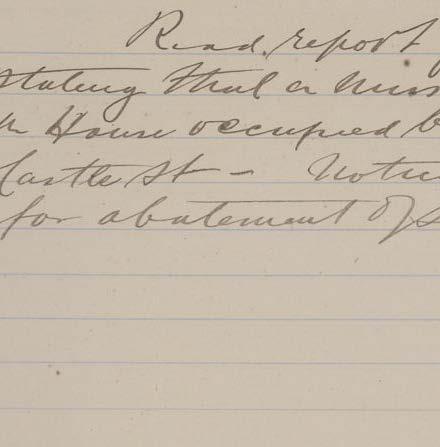 Read report
stating that a
in House occupied
Castle St –
for abatement of